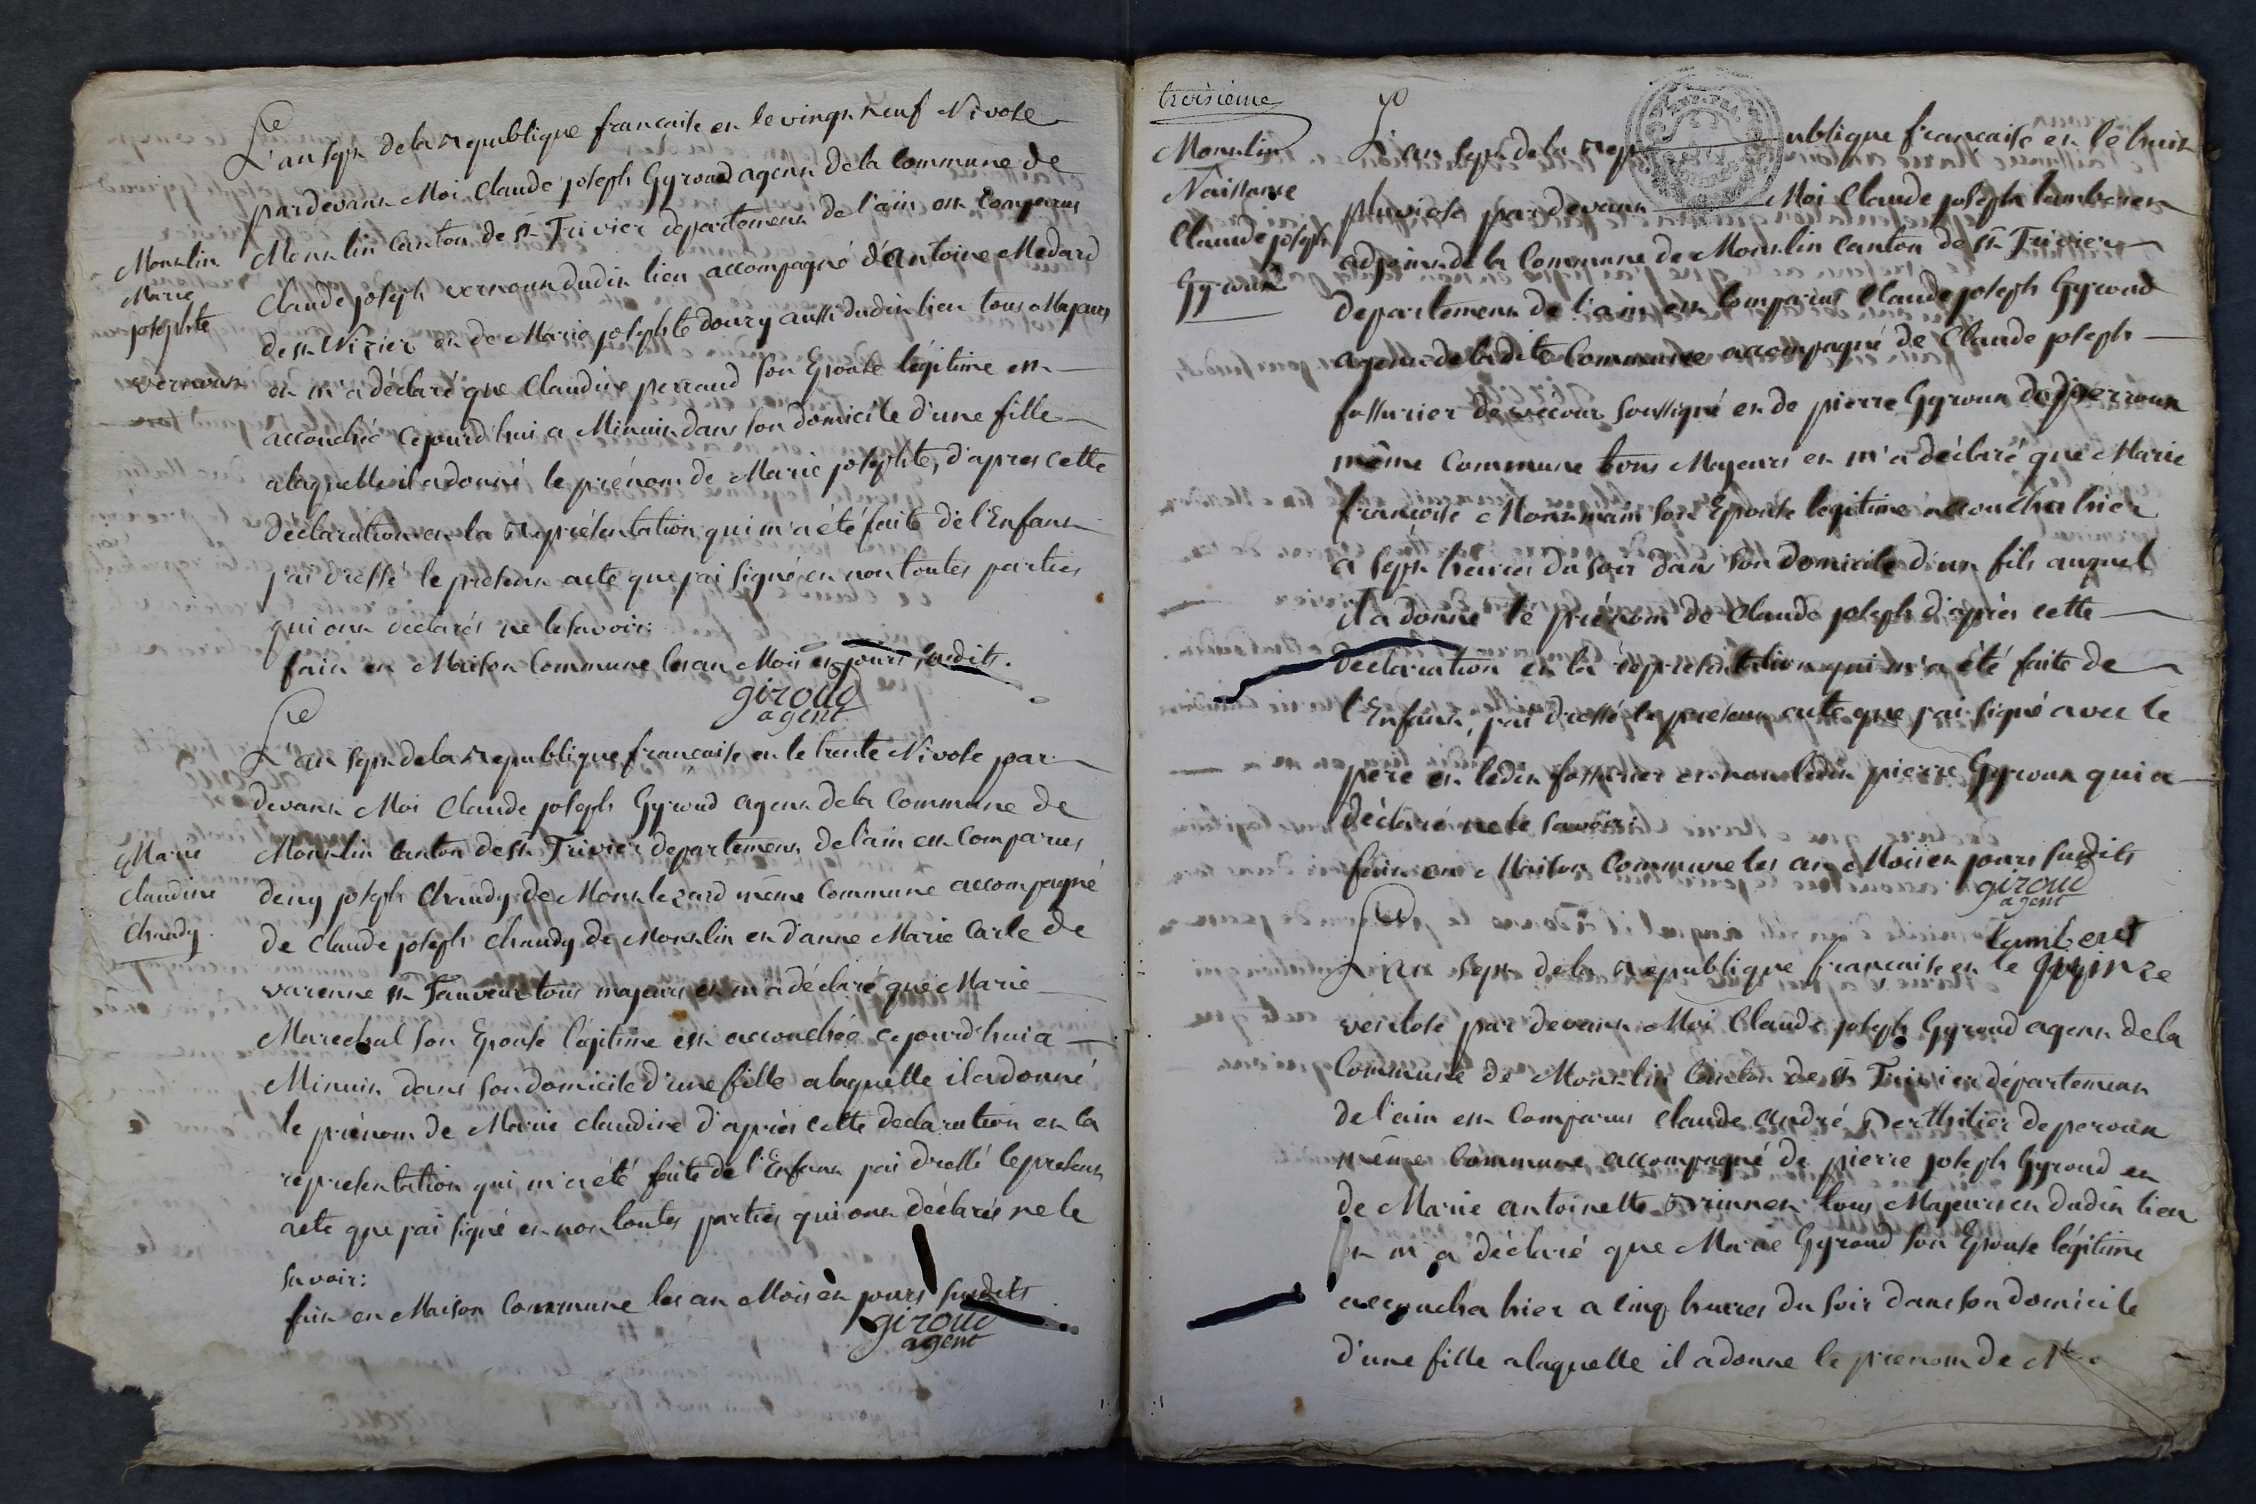 L'an sept de la republique francaise et le vingt neuf Nivose
pardevant Moi Claude joseph Gyroud agent de la Commune de
Montlin Canton de st Trivier departement de l'ain est Comparus
Claude joseph vernoux dudit lieu accompagné d'antoine Medard
de st Nizier et de Marie josephte doury aussi dudit lieu tous Majeurs
et m'a déclaré que Claudine perraud son Epouse légitime est
accouchée cejourd'hui a Minuit dans son domicile d'une fille
alaquelle il a donné le prénom de Marie josephte, d'apres cette
déclaration et la représentation qui m'a été faite de l'Enfant
j'ai dressé le présent acte que j'ai signé et non toutes parties
qui ont declarés ne le savoir:
fait en Maison Commune les an Mois et jours susdits.
giroud
agent
Montlin
Marie
josephte
vernoux
L'an sept de la republique francaise et le trente Nivose par
devant Moi Claude joseph Gyroud agent de la Commune de
Montlin Canton de st Trivier departement de l'ain est Comparus
deny joseph Chaudy de Montlezard même Commune accompagné
de Claude joseph Chaudy de Montlin et d'anne Marie Carle de
varenne st Sauveur tous majeurs et m'a déclaré que Marie
Marechal son Epouse légitime est accouchée cejourd'hui a
Minuit dans son domicile d'une fille alaquelle il a donné
le prénom de Marie claudine d'après cette declaration et la
representation qui m'a été faite de l'Enfant j'ai dressé le present
acte que j'ai signé et non toutes parties qui ont déclarés ne le
savoir:
fait en Maison Commune les an Mois et jours susdits
giroud
agent
Marie
claudine
Chaudy
troisieme
Montlin
Naissance
Claude joseph
Gyroud
L'an sept de la republique francaise et le huit
pluviose par devant Moi Claude joseph lamberet
adjoint de la Commune de Montlin Canton de st Trivier
departement de l'ain est Comparus Claude joseph Gyroud
agent de la dite Commune accompagné de Claude joseph
fossurier de vecour soussigné et de pierre Gyroud de perroux
même Commune tous Majeurs et m'a déclaré que Marie
francoise Montmain son Epouse legitime accoucha hier
a sept heures du soir dans son domicile d'un fils auquel
il a donné le prénom de Claude joseph d'après cette
declaration et la representation qui m'a été faite de
l'Enfant, j'ai dressé le present acte que j'ai signé avec le
pere et ledit fossurier et non ledit pierre Gyroud qui a
déclaré ne le savoir:
fait en Maison Commune les an Mois et jours susdits
giroud
agent
lamberet
L'an sept de la republique francaise et le quinze
ventose par devant Moi Claude joseph Gyroud agent de la
Commune de Montlin Canton de st Trivier département
de l'ain est Comparus Claude andré Berthilier de peroux
même Commune accompagné de pierre joseph Gyroud et
de Marie antoinette tous Majeurs et dudit lieu
et m'a déclaré que Marie Gyroud son Epouse légitime
accoucha hier a cinq heures du soir dans son domicile
d'une fille alaquelle il a donné le prenom de